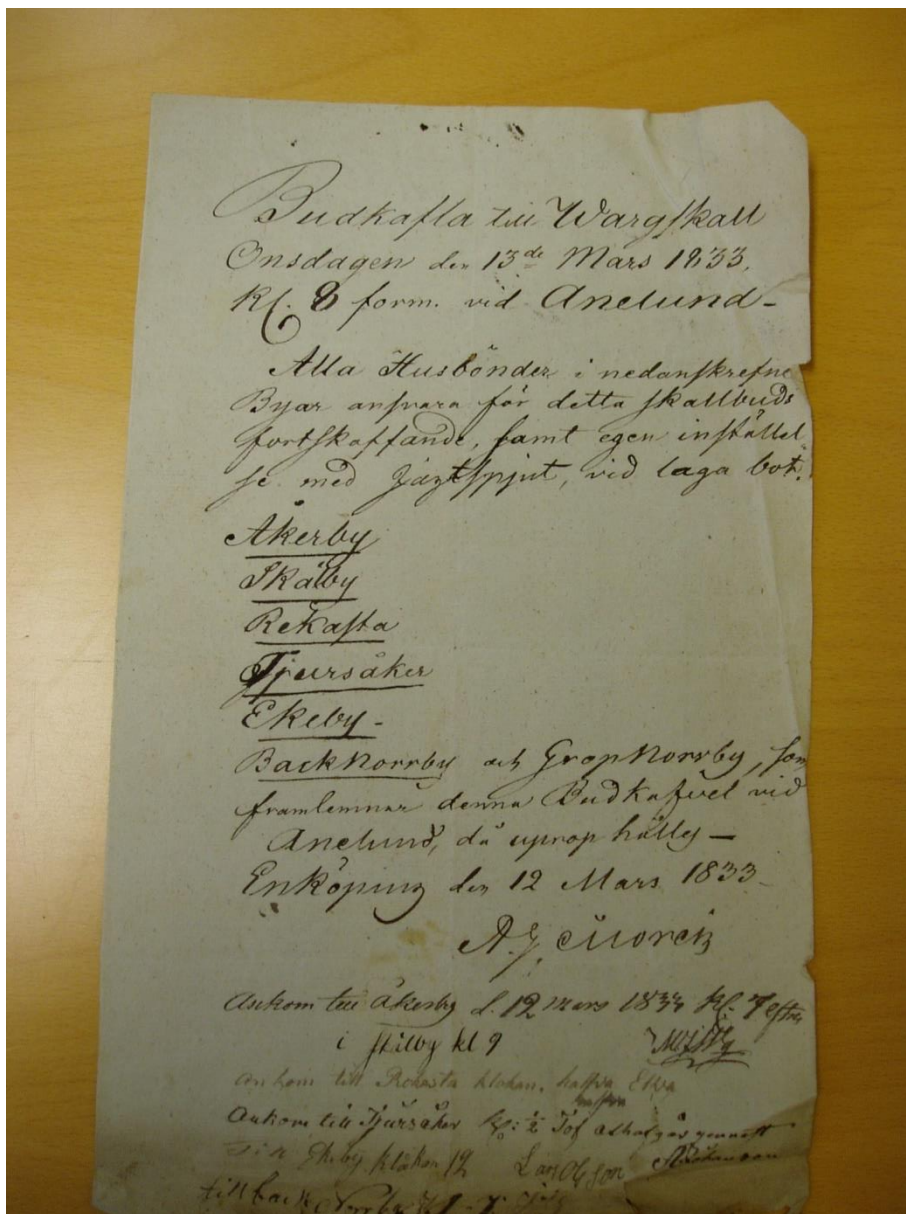 Budkafla till Wargskall
Onsdagen den 13de Mars 1833,
Kl. 8 form. vid Anelund-
Alla Husbönder i nedanskrefne
Byar ansvara för detta skallbuds
fortskaffande, samt egen inställel
se med Jagtspjut, vid laga bot.
Åkerby
Skälby
Rekasta
Tjursåker
Ekeby-
Backnorrby och Gropnorrby, som
framlemnar denna Budkafvel vid
Anelund, då uprop hålles—
Enköping den 12 Mars 1833-
A. J.
Ankom till Åkerby d. 12 mars 1833 kl. 7 efter
i skilby kl 9
an kom till Rekasta klokan, halfva Elva
Ankom till Tjursåker
till Ekeby klokan 12
till back Norrby